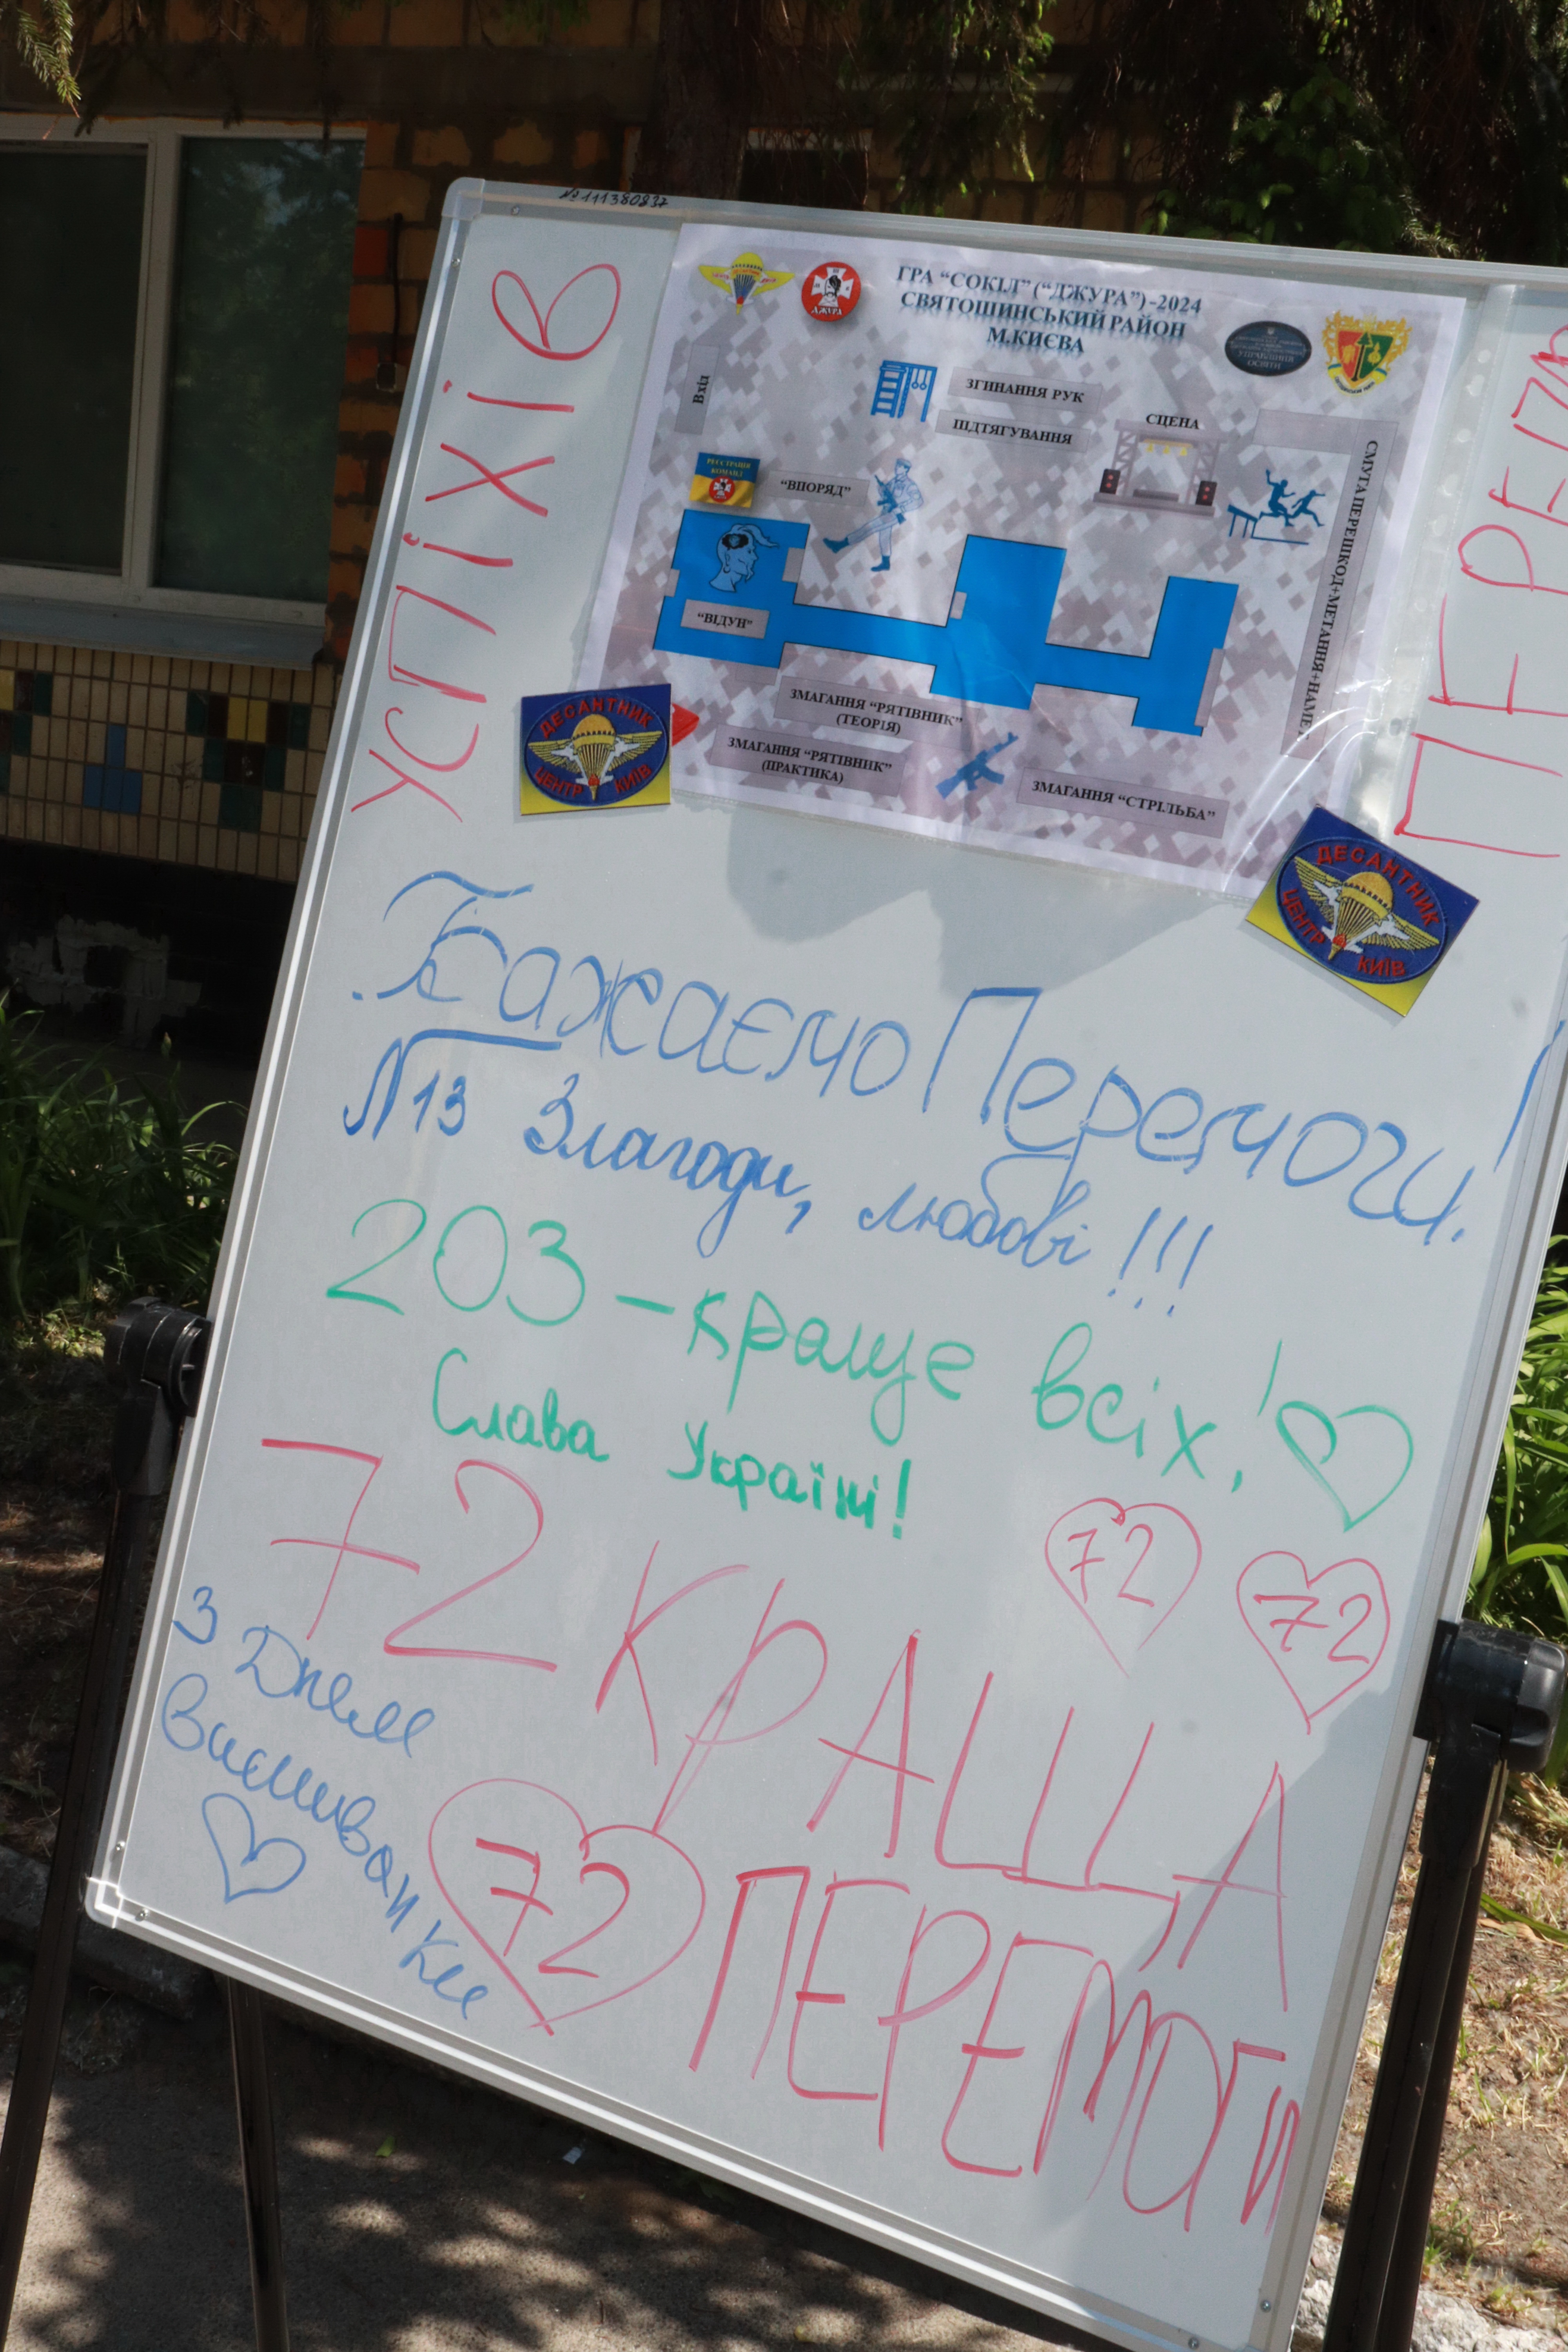 №111380837
УСПІХІВ
ГРА “СОКІЛ” (“ДЖУРА”)-2024
СВЯТОШИНСЬКИЙ РАЙОН
М.КИЄВА
ДЖУРА
УПРАВЛІННЯ
ОСВІТИ
Вхід
ЗГИНАННЯ РУК
ПІДТЯГУВАННЯ
СЦЕНА
РЕЄСТРАЦІЯ
КОМАНД
“ВПОРЯД”
“ВІДУН”
СМУГА ПЕРЕШКОД+МЕТАННЯ+НАМЕТ
ЗМАГАННЯ “РЯТІВНИК”
(ТЕОРІЯ)
ЗМАГАННЯ “РЯТІВНИК”
(ПРАКТИКА)
ЗМАГАННЯ “СТРІЛЬБА”
ДЕСАНТНИК
ЦЕНТР КИЇВ
ДЕСАНТНИК
ЦЕНТР КИЇВ
Бажаємо Перемоги!
N13 Злагоди, любові!!!
203 – краще всіх!
Слава Україні!
72 КРАЩА
72
72
З Днем
Вишиванки
72
ПЕРЕМОГИ